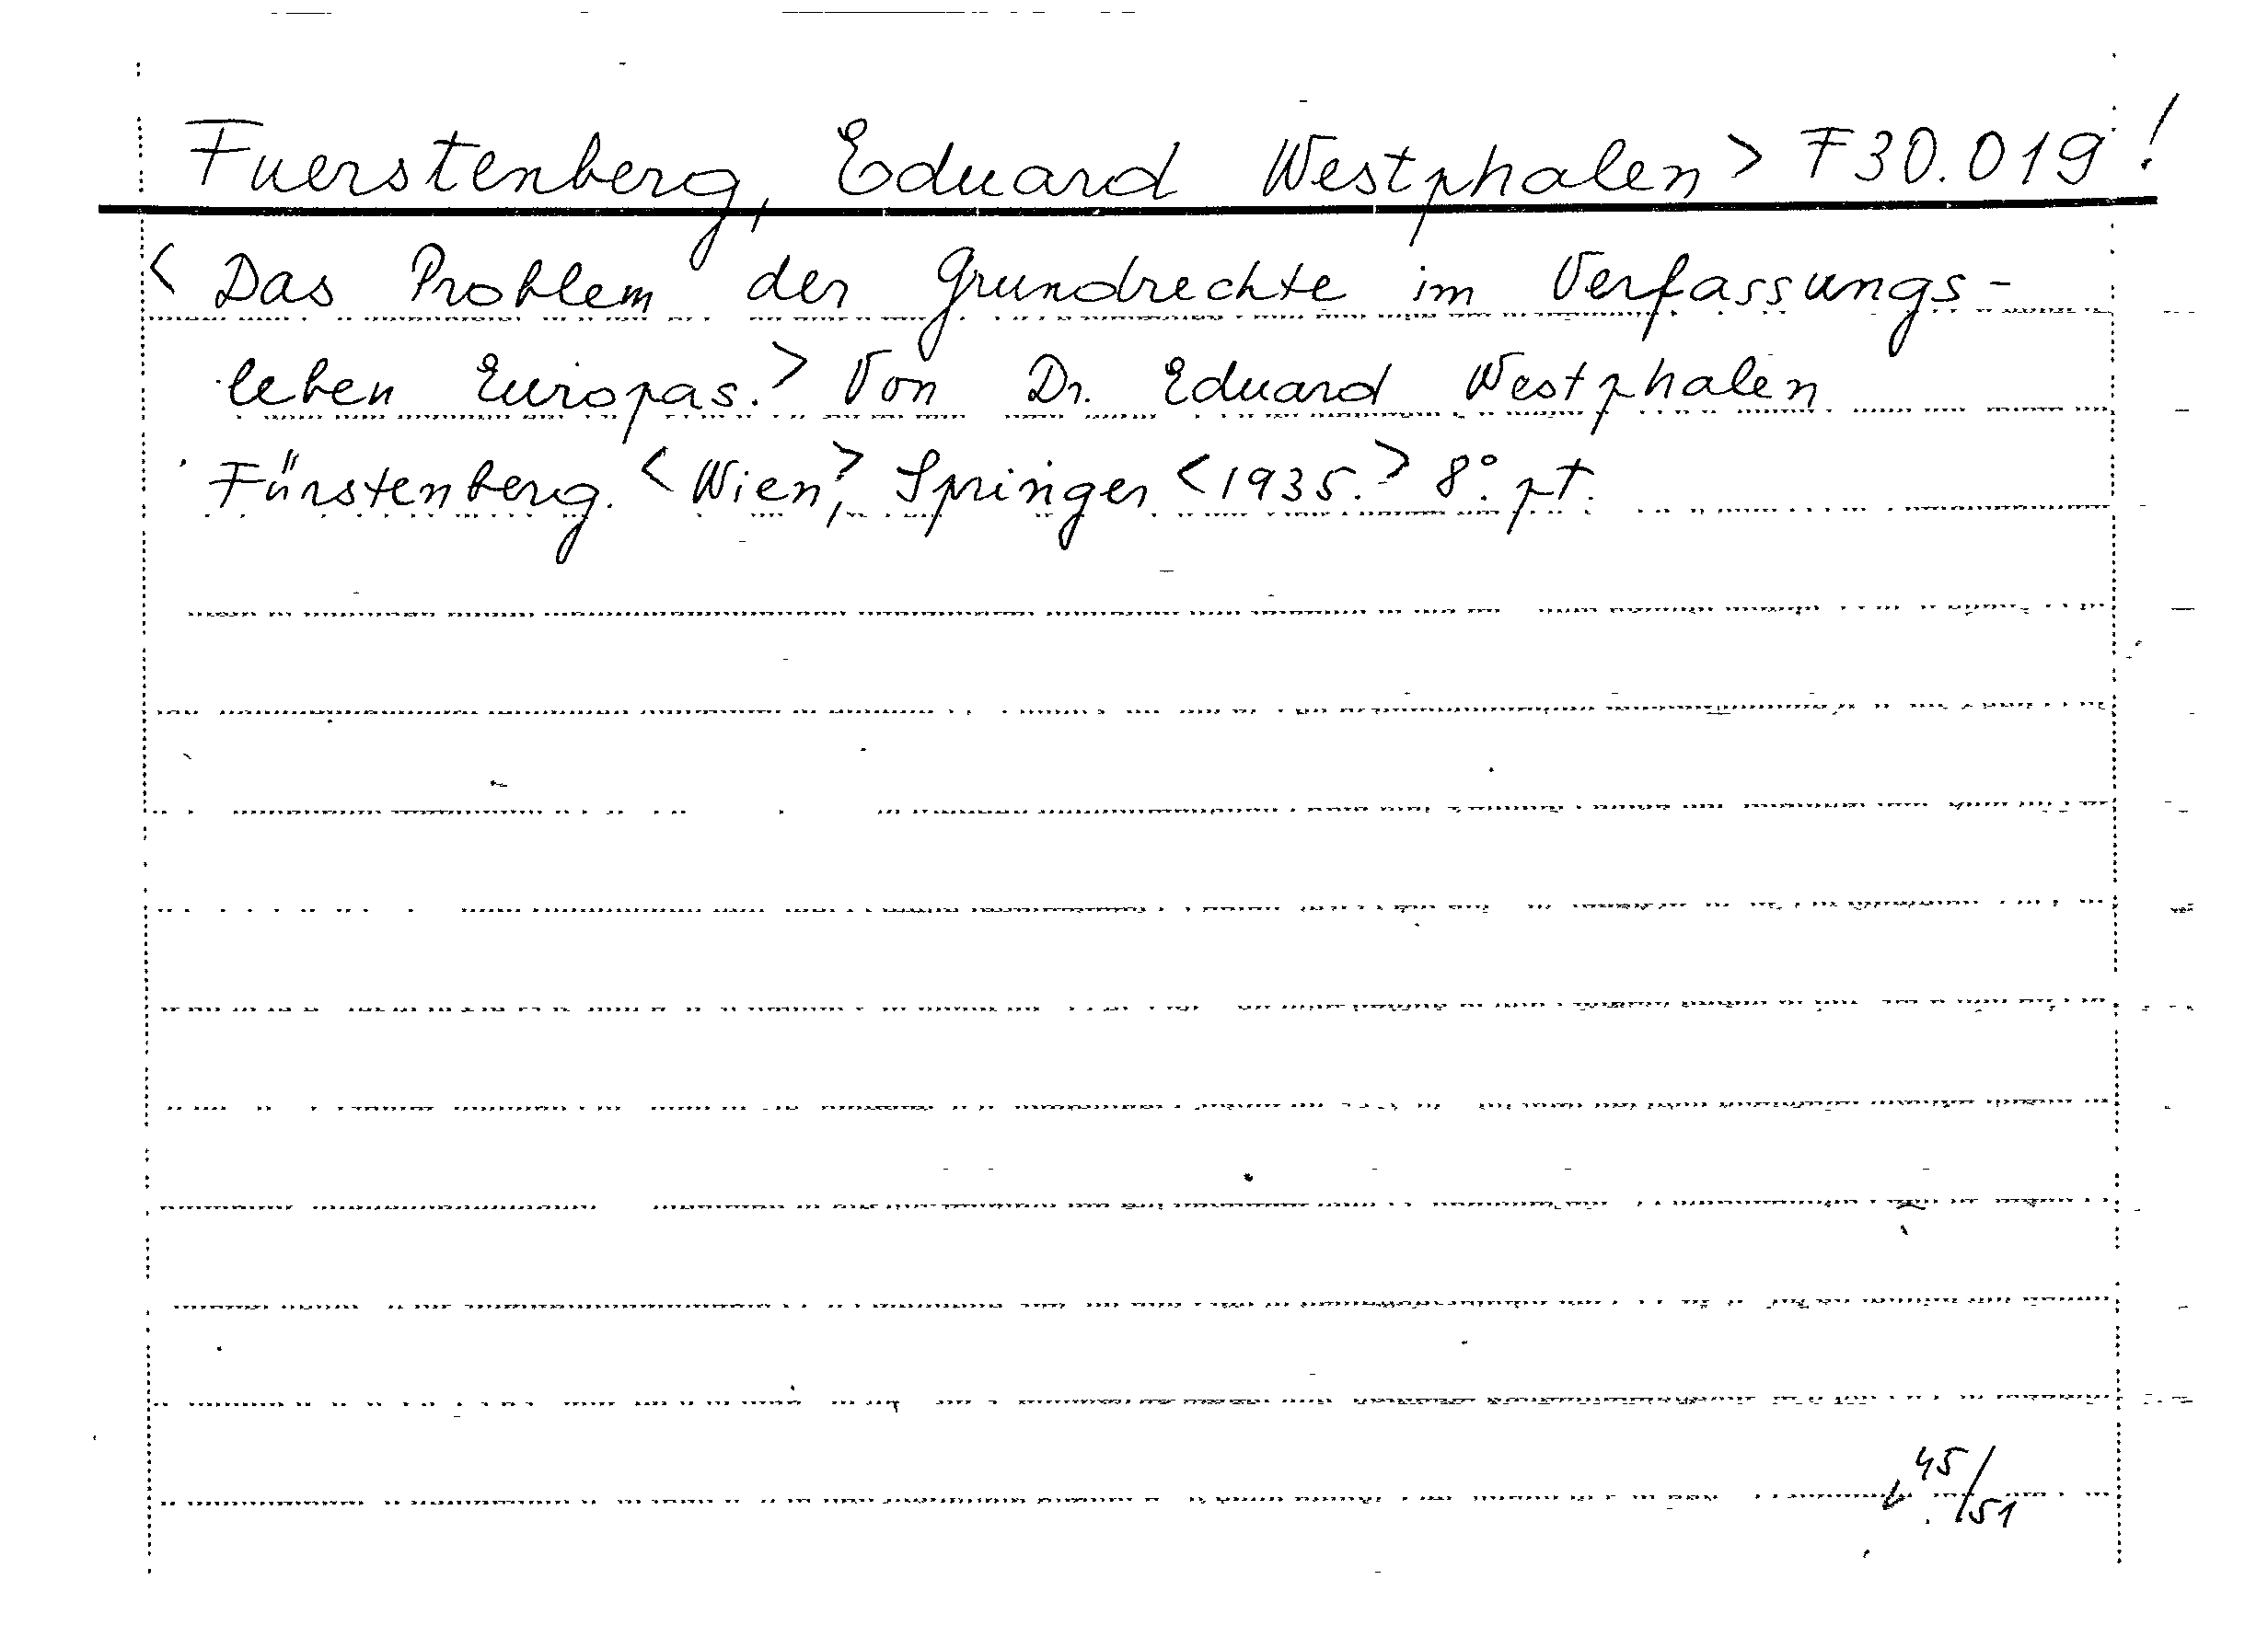 Fuerstenberg, Eduard Westphalen > F30.019!
< Das Problem der Grundrechte im Verfassungs-
leben Europas. > Von Dr. Eduard Westphalen
Fürstenberg. < Wien, > Springer < 1935. > 8°. pt.
45/51